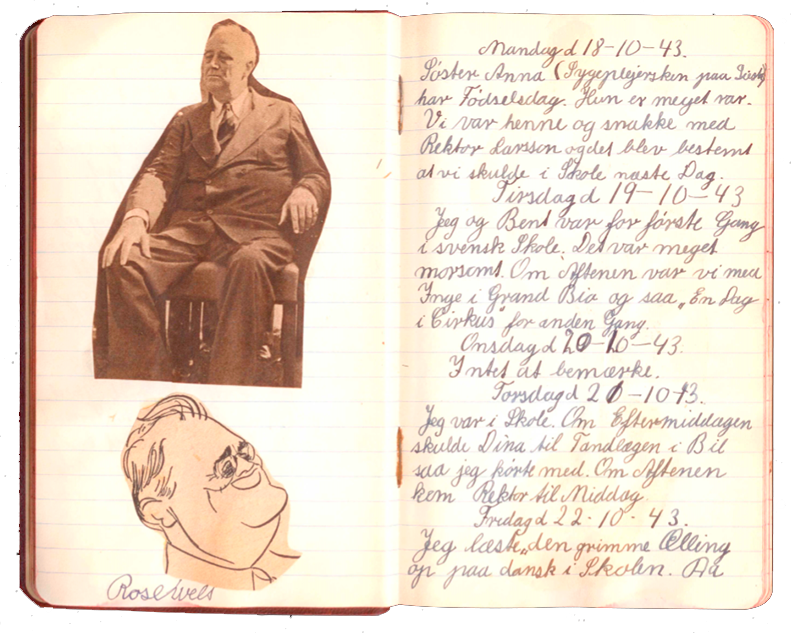 Rosewels
Mandag d 18-10-43.
Söster Anna (Sygeplejersken paa
har Födselsdag. Hun er meget rar.
Vi var henne og snakke med
Rektor Larsson og det blev bestemt
at vi skulde i Skole næste Dag.
Tirsdag d 19-10-43
Jeg og Bent var for förste Gang
i svensk Skole. Det var meget
morsomt. Om Aftenen var vi med
Inge i Grand Bio og saa „En Dag
i Cirkus" for anden Gang.
Onsdag d 20-10-43.
Intet at bemærke.
Torsdag d 21-10-43.
Jeg var i Skole. Om Eftermiddagen
skulde Dina til Tandlægen i Bil
saa jeg körte med. Om Aftenen
kom Rektor til Middag.
Fredag d 22-10-43.
Jeg læste „den grimme Ælling
op paa dansk i Skolen. Da